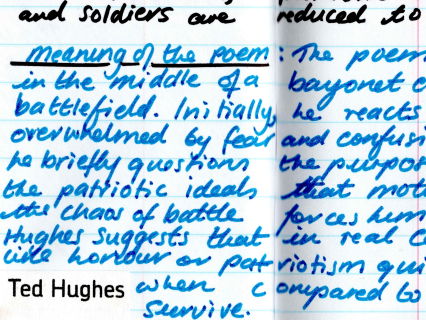 and soldiers are reduced to
meaning of the poem : The poem
in the middle of a bayonet c
battlefield. Initially, he reacts
overwhelmed by fear and confusi
he briefly questions the purpos
the patriotic ideals that mot
the chaos of battle forces him
Hughes suggests that in real c
like honour or pat riotism qui
Ted Hughes when c ompared to
survive.